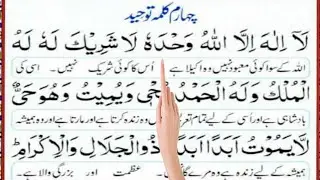 چہارم کلمہ توحید
لَآ اِلٰهَ اِلَّا اللّٰهُ وَحْدَهٗ لَا شَرِيْكَ لَهٗ لَهُ
اللہ کے سوا کوئی معبود نہیں وہ اکیلا ہے اُس کا کوئی شریک نہیں۔ اسی کی
الْمُلْكُ وَلَهُ الْحَمْدُ يُحْيِىْ وَيُمِيْتُ وَهُوَ حَىٌّ
بادشاہی ہے اور اسی کے لیے تمام وہی زندہ کرتا ہے اور مارتا ہے اور وہ ہمیشہ
لَّا يَمُوْتُ اَبَدًا اَبَدًا ذُو الْجَلَالِ وَالْاِكْرَامِ
ہمیشہ کے لیے زندہ ہے وہ مرے گا نہیں۔ عظمت اور بزرگی والا ہے۔